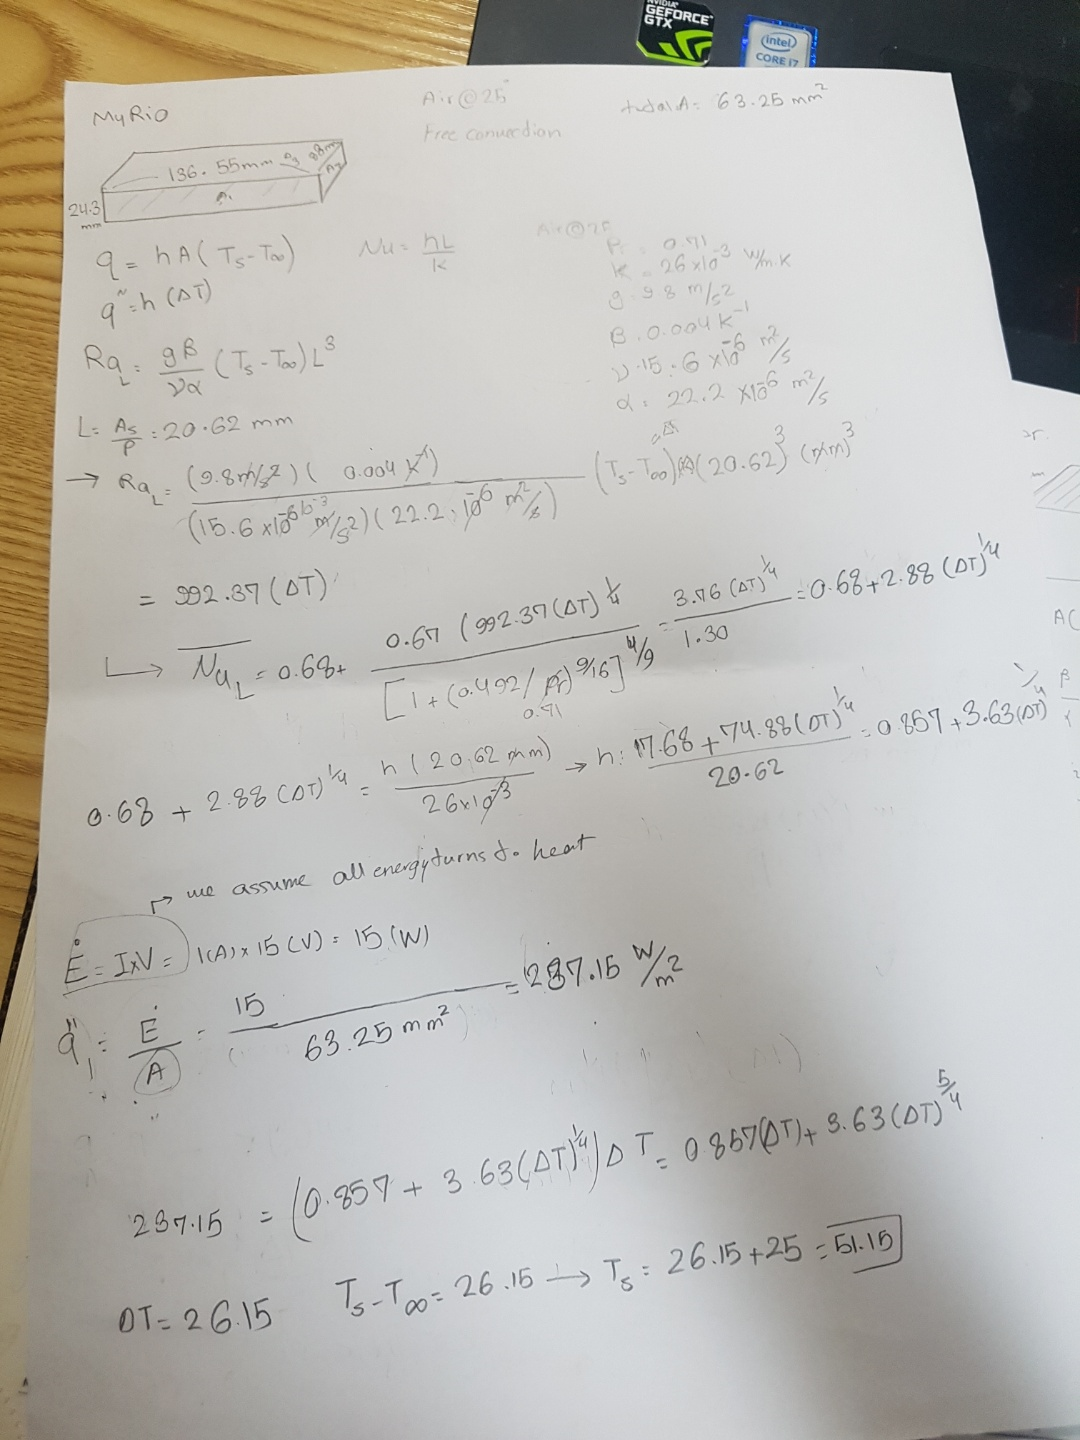 NVIDIA
GEFORCE
GTX
intel
CORE i7
MyRio
Air @ 25°
Free convection
total A = 63.25 mm²
136.55mm
88m
A₂
24.3
mm
A₁
q = hA(Ts - T∞)
Nu = hL/k
q" = h (ΔT)
Air @ 25
Pr = 0.71
k = 26 x10⁻³ W/m.K
g = 9.8 m/s²
β = 0.004 K⁻¹
ν = 15.6 x10⁻⁶ m²/s
α = 22.2 x10⁻⁶ m²/s
Ra_L = gβ/να (Ts - T∞) L³
L = As/P = 20.62 mm
→ Ra_L = (9.8 m/s²) ( 0.004 K⁻¹) / (15.6 x10⁻⁶ m/s²) ( 22.2 . 10⁻⁶ m²/s) (Ts - T∞) (20.62)³ (mm)³
= 992.37 (ΔT)
↳ Nu_L = 0.68 + 0.67 (992.37(ΔT)^1/4 / [1 + (0.492/Pr)^9/16]^4/9 = 3.76 (ΔT)^1/4 / 1.30 = 0.68 + 2.88 (ΔT)^1/4
0.71
0.68 + 2.88 (ΔT)^1/4 = h (20.62 mm) / 26x10⁻³ → h = 17.68 + 74.88 (ΔT)^1/4 / 20.62 = 0.857 + 3.63 (ΔT)^1/4
we assume all energy turns to heat
Ė = IxV = 1(A) x 15 (V) = 15 (W)
q"₁ = Ė/A = 15 / 63.25 mm² = 237.15 W/m²
237.15 = (0.857 + 3.63 (ΔT)^1/4) ΔT = 0.857(ΔT) + 3.63 (ΔT)^5/4
ΔT = 26.15 Ts - T∞ = 26.15 → Ts = 26.15 + 25 = 51.15